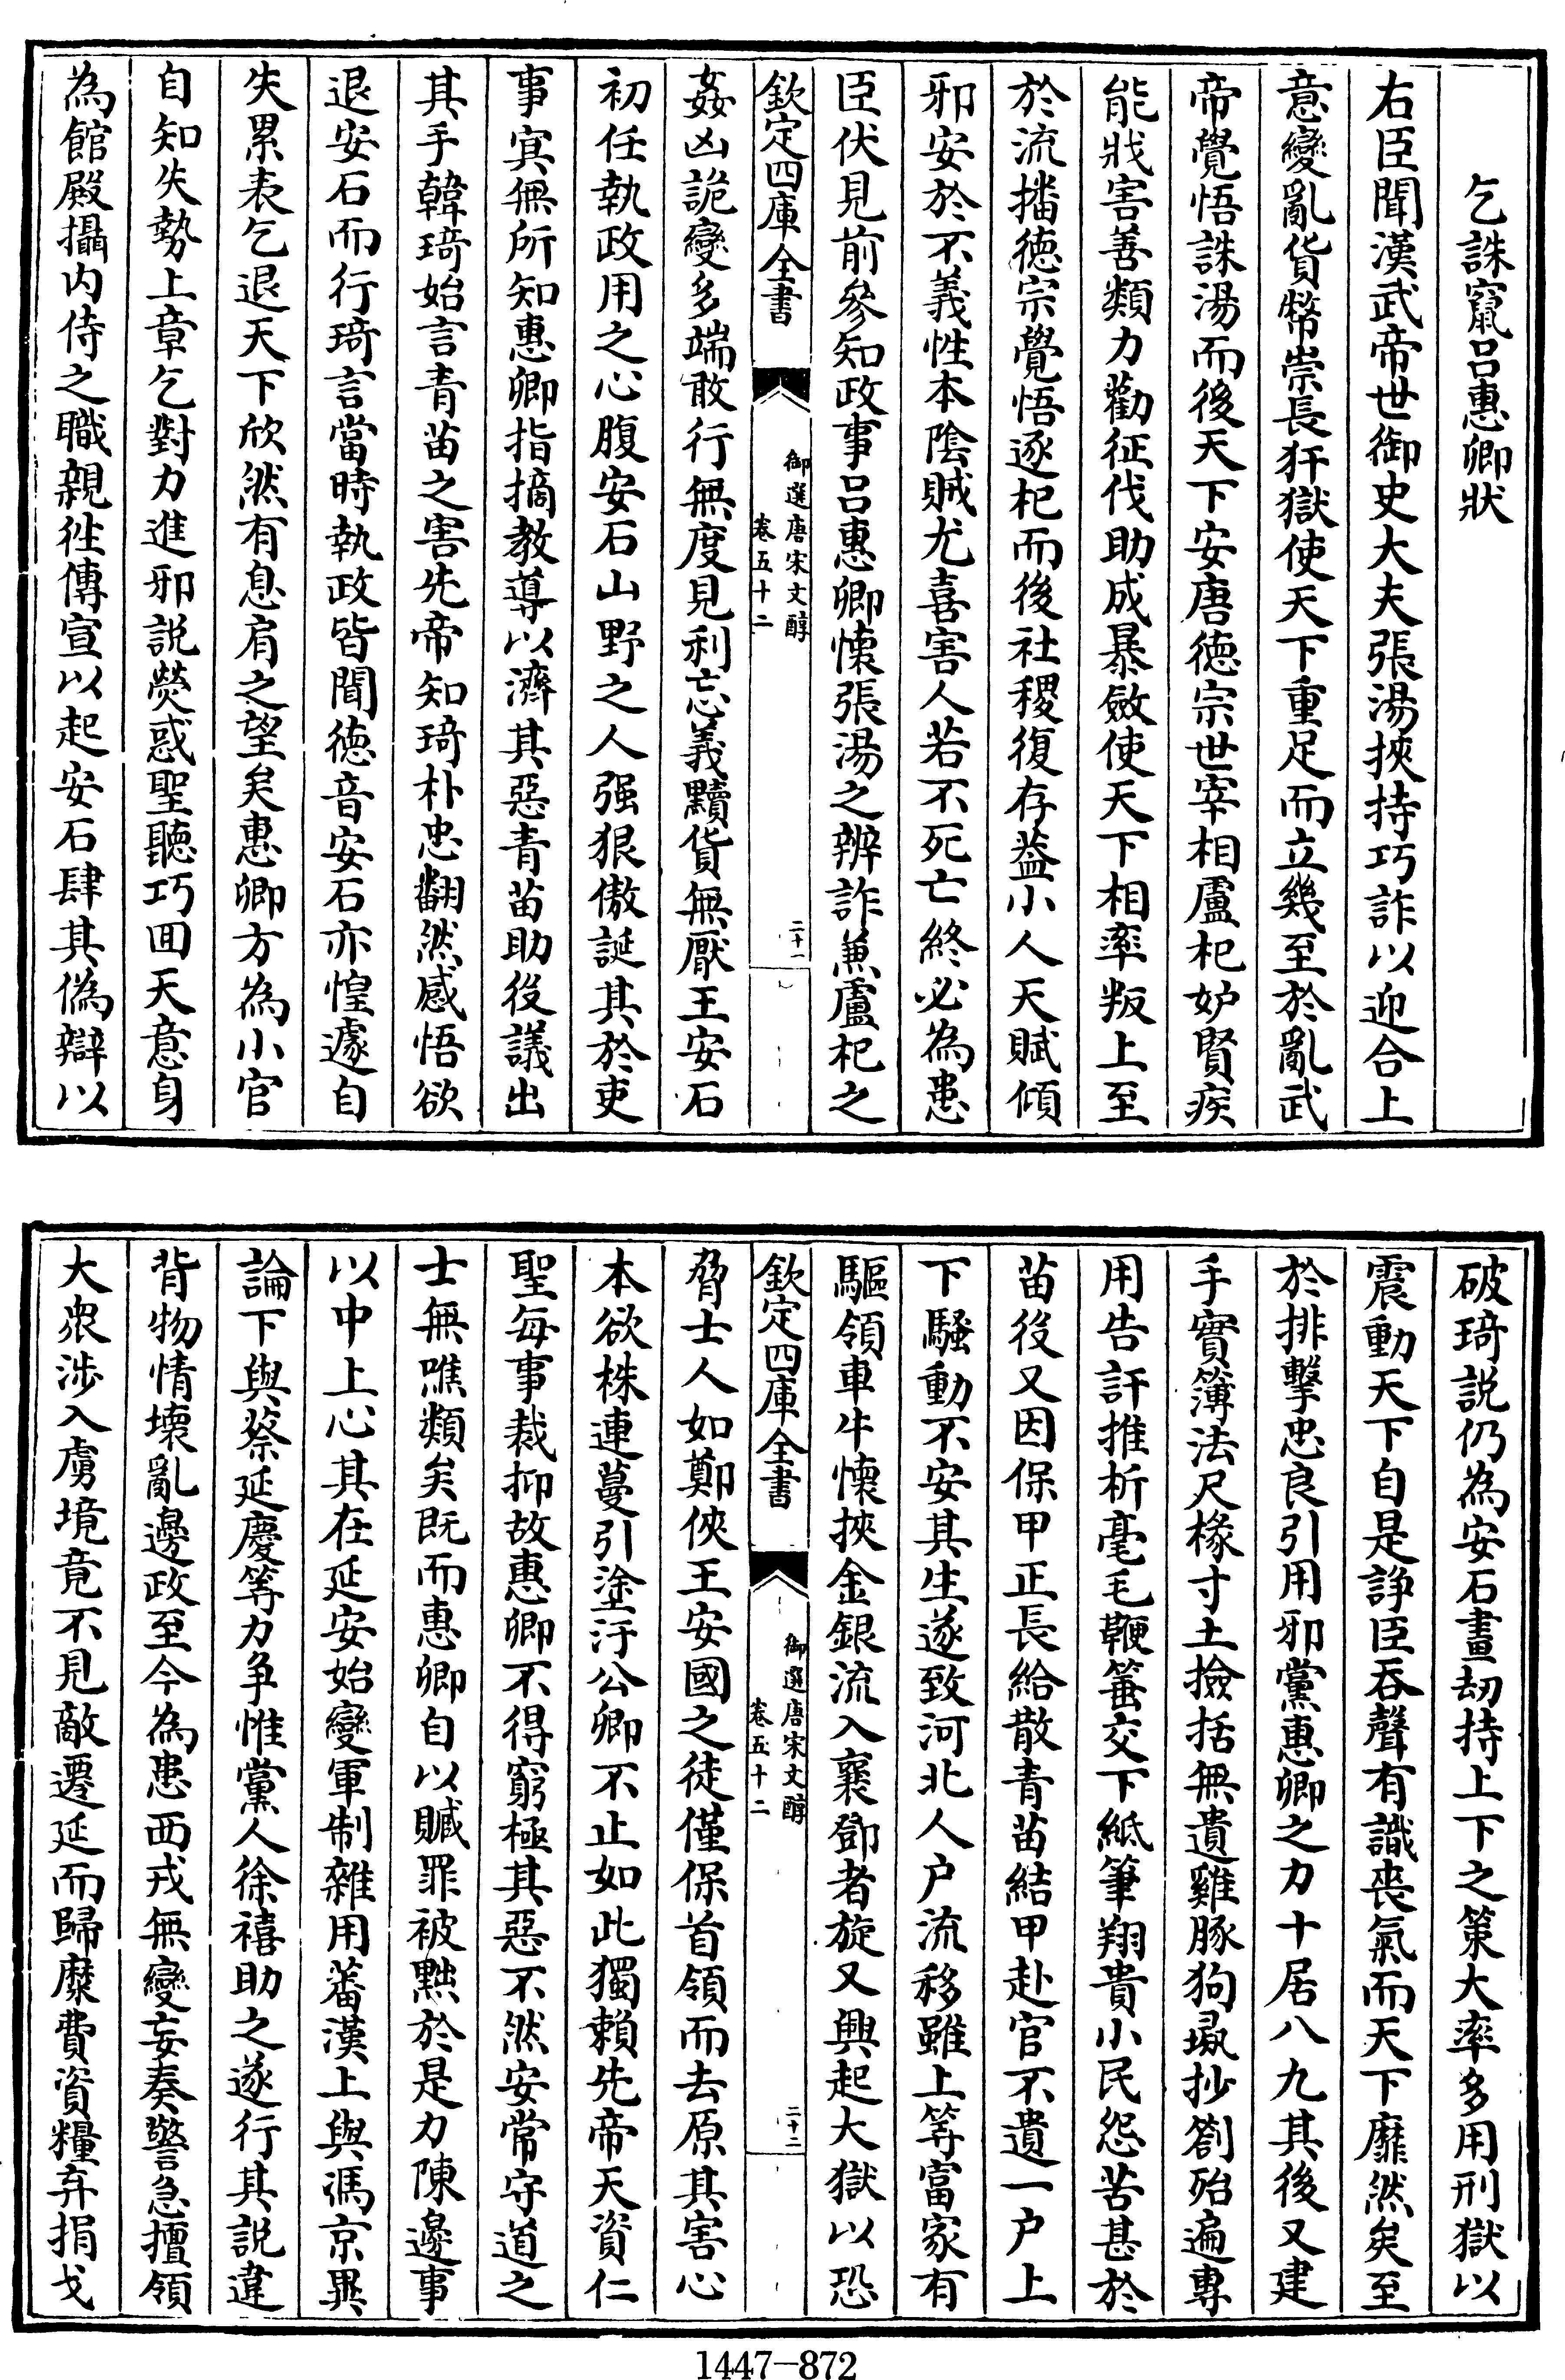 乞誅竄呂惠卿狀
右臣聞漢武帝世御史大夫張湯挾持巧詐以迎合上
意變亂貨幣崇長犴獄使天下重足而立幾至於亂武
帝覺悟誅湯而後天下安唐德宗世宰相盧杞妒賢疾
能戕害善類力勸征伐助成暴斂使天下相率叛上至
於流播德宗覺悟逐杞而後社稷復存葢小人天賦傾
邪安於不義性本隂賊尤喜害人若不死亡終必為患
臣伏見前參知政事呂惠卿懐張湯之辨詐兼盧杞之
欽定四庫全書
御選唐宋文醇
卷五十二
二十一
姦凶詭變多端敢行無度見利忘義黷貨無厭王安石
初任執政用之心腹安石山野之人强狠傲誕其於吏
事冥無所知惠卿指摘教導以濟其惡青苗助役議出
其手韓琦始言青苗之害先帝知琦朴忠翻然感悟欲
退安石而行琦言當時執政皆聞德音安石亦惶遽自
失累表乞退天下欣然有息肩之望矣惠卿方為小官
自知失勢上章乞對力進邪說熒惑聖聽巧囬天意身
為館殿攝内侍之職親徃傳宣以起安石肆其偽辯以
破琦說仍為安石畫刼持上下之策大率多用刑獄以
震動天下自是諍臣吞聲有識喪氣而天下靡然矣至
於排擊忠良引用邪黨惠卿之力十居八九其後又建
手實簿法尺椽寸土撿括無遺雞豚狗彘抄劄殆遍專
用告訐推析毫毛鞭箠交下紙筆翔貴小民怨苦甚於
苗役又因保甲正長給散青苗結甲赴官不遺一户上
下騷動不安其生遂致河北人户流移雖上等富家有
驅領車牛懐挾金銀流入襄鄧者旋又興起大獄以恐
欽定四庫全書
御選唐宋文醇
卷五十二
二十二
脅士人如鄭俠王安國之徒僅保首領而去原其害心
本欲株連蔓引塗汙公卿不止如此獨賴先帝天資仁
聖每事裁抑故惠卿不得窮極其惡不然安常守道之
士無噍類矣既而惠卿自以贓罪被黜於是力陳邊事
以中上心其在延安始變軍制雜用蕃漢上與馮京異
論下與蔡延慶等力争惟黨人徐禧助之遂行其說違
背物情壊亂邊政至今為患西戎無變妄奏警急擅領
大衆涉入虜境竟不見敵遷延而歸糜費資糧弃捐戈
1447—872